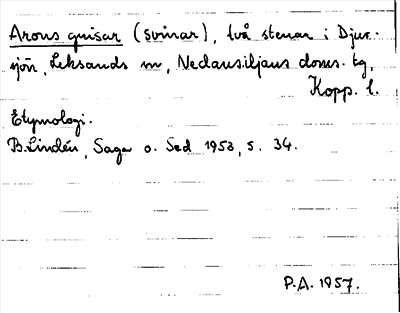 Arons grisar (svinar), två stenar i Djur-
sjön, Leksands sn, Nedansiljans doms. tg,
Kopp. l.
Etymologi.
B. Lindén, Saga o. Sed 1953, s. 34.
P.A. 1957.